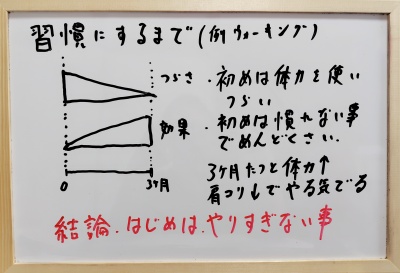 習慣にするまで(例ウォーキング)
つらさ
・初めは体力を使い
つらい
効果
・初めは慣れない事
でめんどくさい.
3ヶ月たつと体力↑
肩コリもでやる気でる
0
3ヶ月
結論.はじめは.やりすぎない事